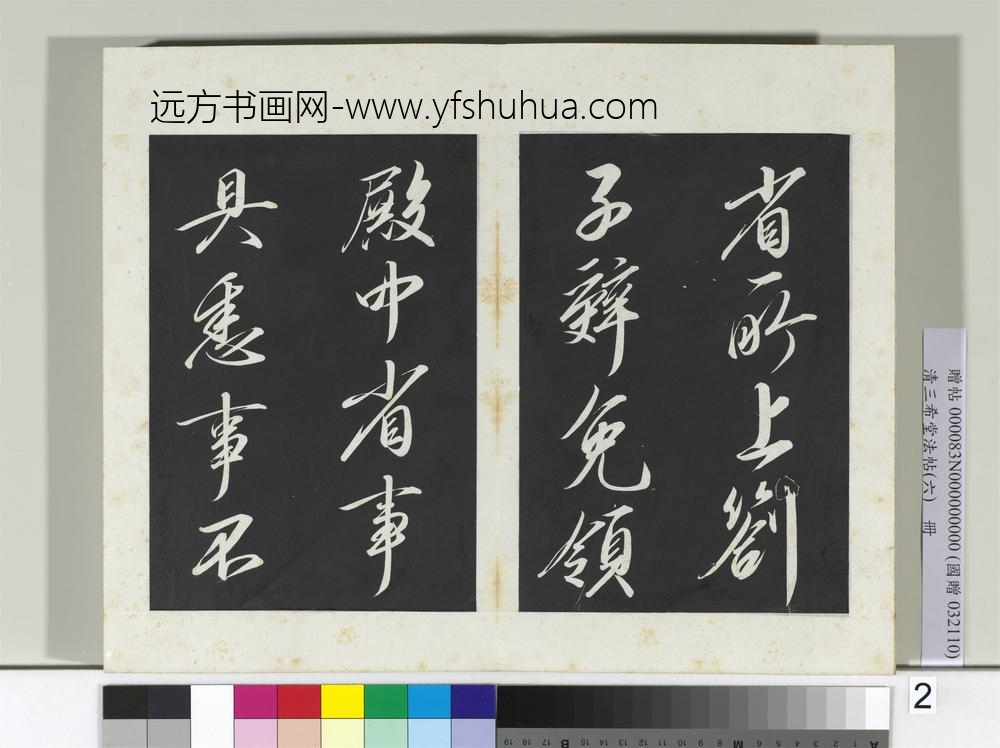 远方书画网-www.yfshuhua.com
省所上劄
子辞免領
殿中省事
具悉事不
贈帖 000083N000000000 (國贈 032110)
清三希堂法帖(六) 冊
2
19 18 17 16 15 B 12 11 10 9 8 M 6 5 4 3 2 1 A